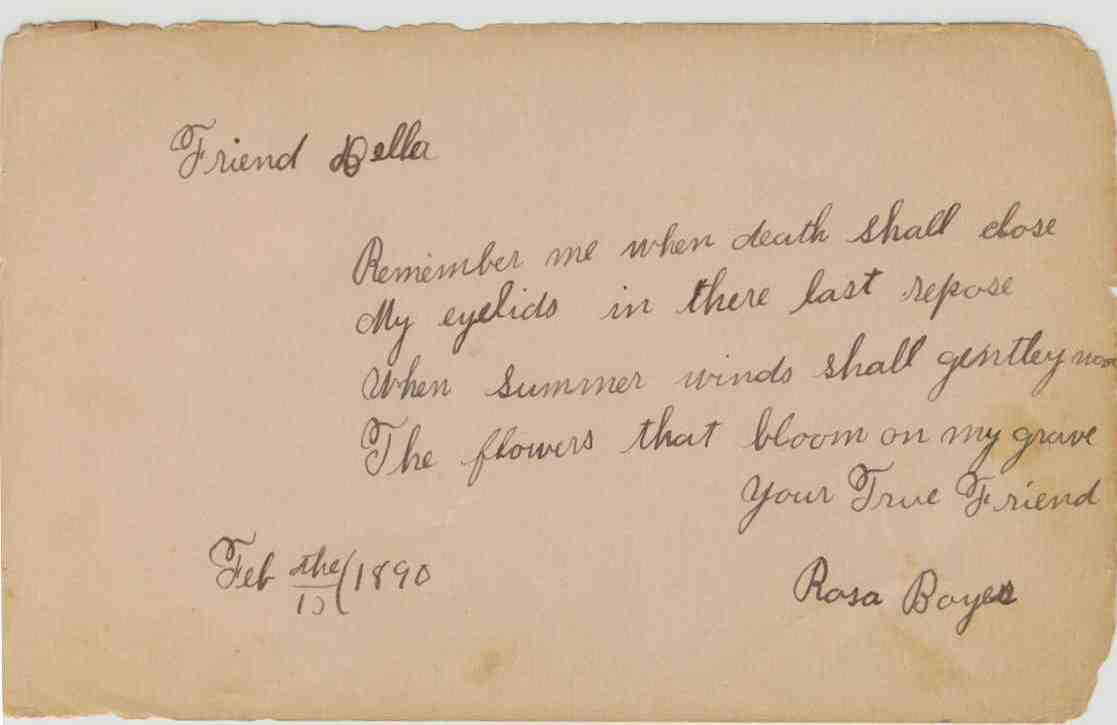 Friend Della
Remember me when death shall close
My eyelids in there last repose
When summer winds shall gentley
The flowers that bloom on my grave
Your True Friend
Feb the 1890
Rosa Boyer